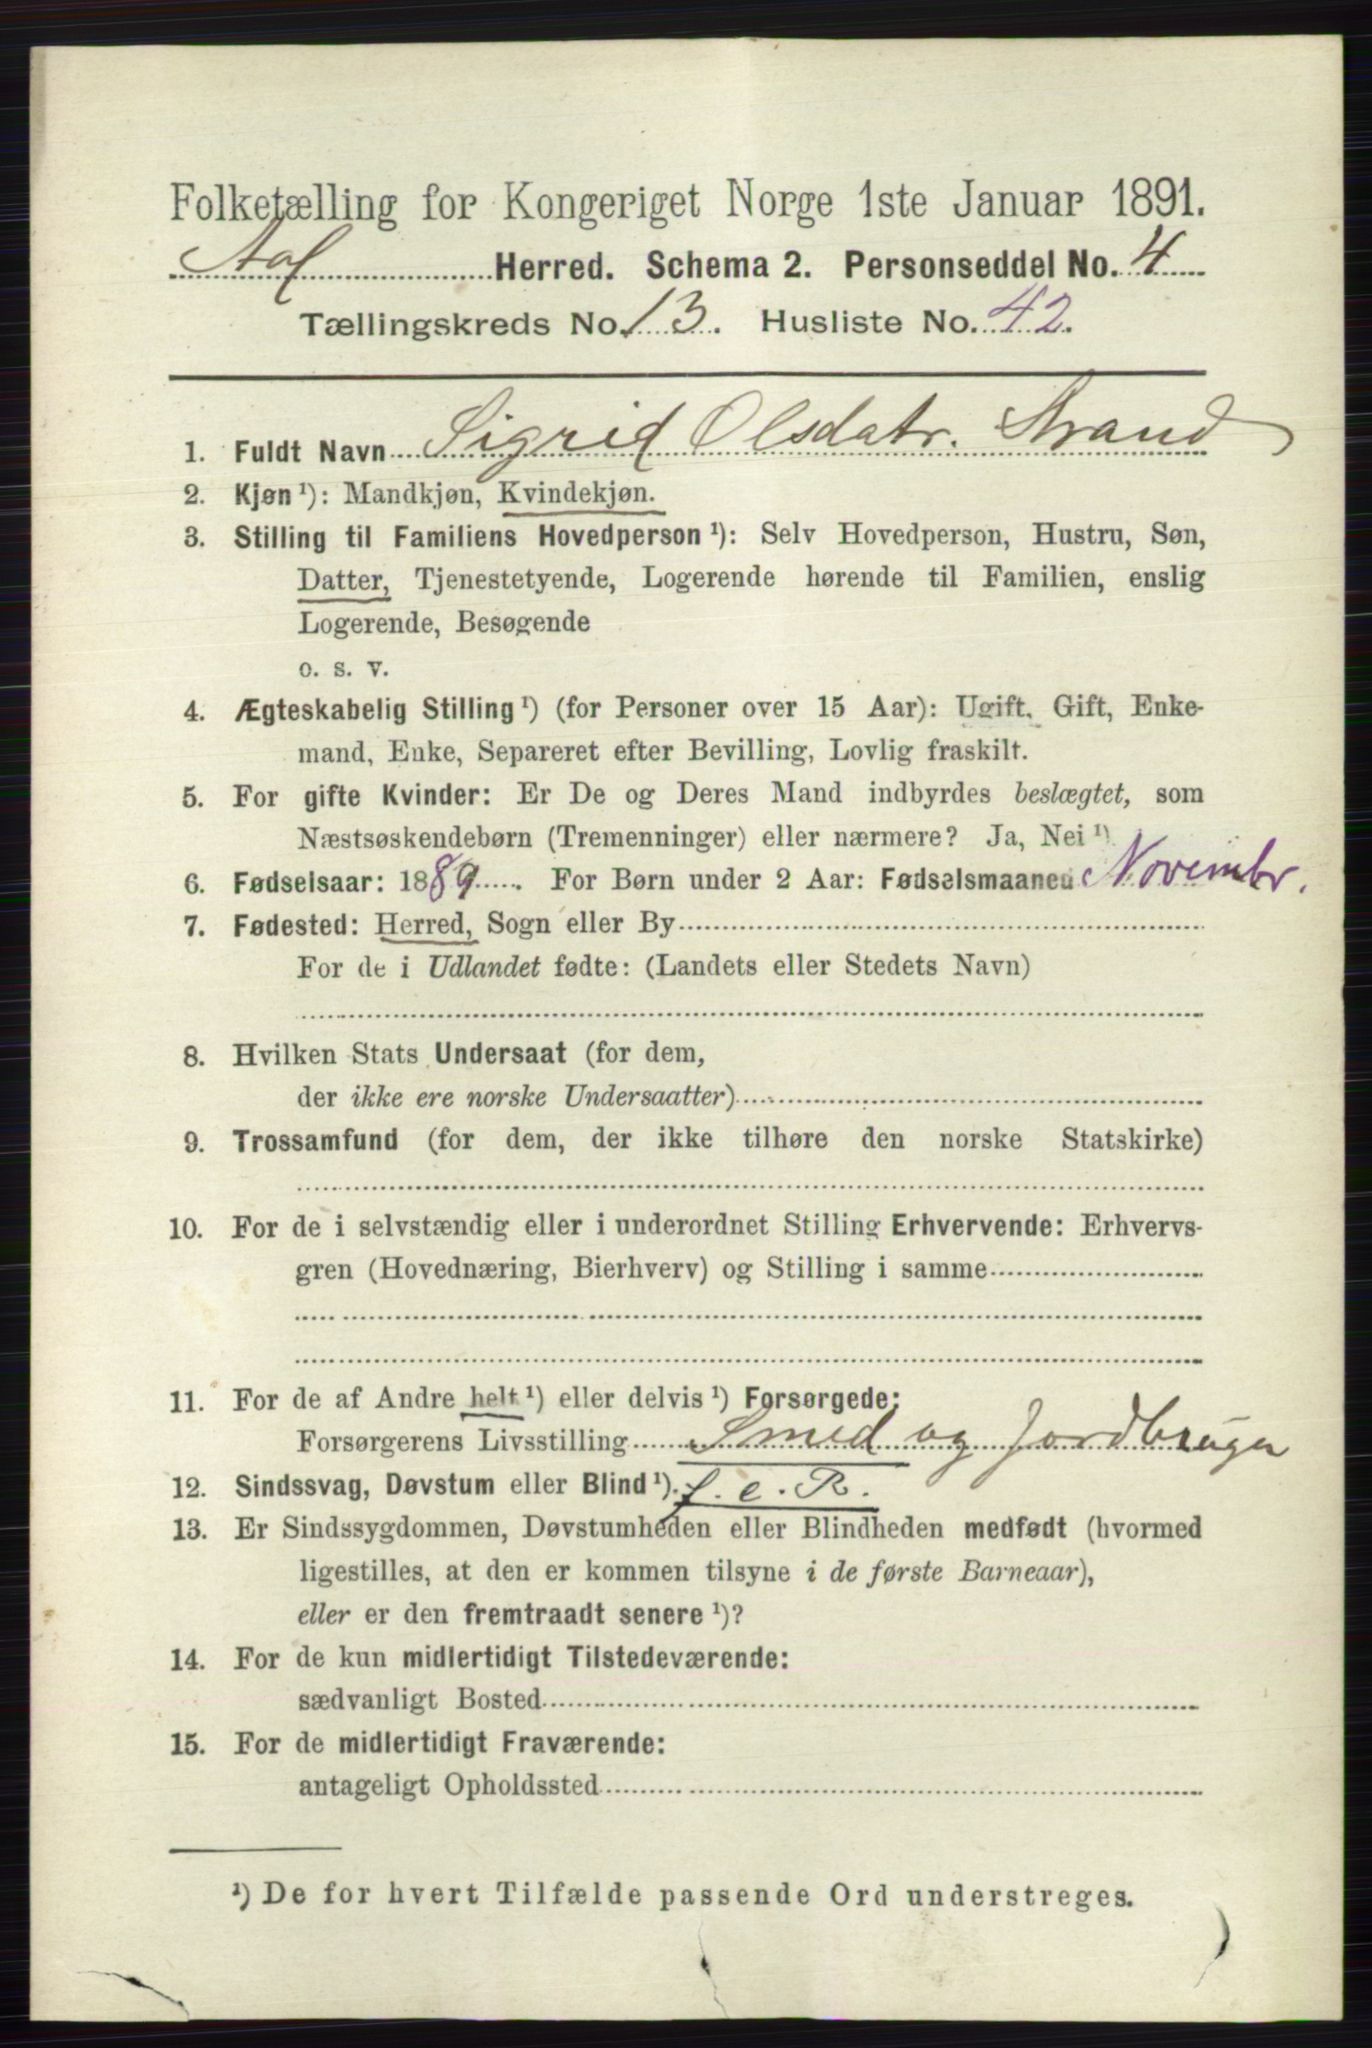 Folketælling for Kongeriget Norge 1ste Januar 1891.
Aal Herred. Schema 2. Personseddel No. 4
Tællingskreds No. 13. Husliste No. 42.
1. Fuldt Navn Sigrid Olsdatr. Strand
2. Kjøn ¹): Mandkjøn, Kvindekjøn.
3. Stilling til Familiens Hovedperson ¹): Selv Hovedperson, Hustru, Søn,
Datter, Tjenestetyende, Logerende hørende til Familien, enslig
Logerende, Besøgende
o. s. v.
4. Ægteskabelig Stilling ¹) (for Personer over 15 Aar): Ugift, Gift, Enke-
mand, Enke, Separeret efter Bevilling, Lovlig fraskilt.
5. For gifte Kvinder: Er De og Deres Mand indbyrdes beslægtet, som
Næstsøskendebørn (Tremenninger) eller nærmere? Ja, Nei ¹)
6. Fødselsaar: 1889. For Børn under 2 Aar: Fødselsmaaned Novembr.
7. Fødested: Herred, Sogn eller By
For de i Udlandet fødte: (Landets eller Stedets Navn)
8. Hvilken Stats Undersaat (for dem,
der ikke ere norske Undersaatter)
9. Trossamfund (for dem, der ikke tilhøre den norske Statskirke)
10. For de i selvstændig eller i underordnet Stilling Erhvervende: Erhvervs-
gren (Hovednæring, Bierhverv) og Stilling i samme
11. For de af Andre helt ¹) eller delvis ¹) Forsørgede:
Forsørgerens Livsstilling Smed og Jordbruger
12. Sindssvag, Døvstum eller Blind ¹). f. e. R.
13. Er Sindssygdommen, Døvstumheden eller Blindheden medfødt (hvormed
ligestilles, at den er kommen tilsyne i de første Barneaar),
eller er den fremtraadt senere ¹)?
14. For de kun midlertidigt Tilstedeværende:
sædvanligt Bosted
15. For de midlertidigt Fraværende:
antageligt Opholdssted
¹) De for hvert Tilfælde passende Ord understreges.